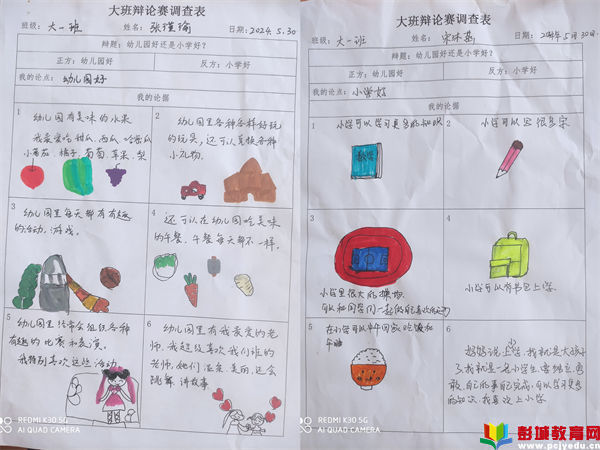 大班辩论赛调查表
班级：大一班 姓名：张瑾瑜 日期：2024.5.30
辩题：幼儿园好还是小学好？
正方：幼儿园好 反方：小学好
我的论点：幼儿园好
我的论据
1
幼儿园有美味的水果
我最爱吃甜瓜、西瓜、哈密瓜
小番茄、桃子、葡萄、苹果、梨
2
幼儿园里各种各样好玩
的玩具，还可以兑换各种
小礼物。
3
幼儿园里每天都有有趣
的活动，游戏。
4
还可以在幼儿园吃美味
的午餐，午餐每天都不一样。
5
幼儿园里经常会组织各种
有趣的比赛和表演。
我特别喜欢这些活动
6
幼儿园里有我最爱的老
师，我超级喜欢我们班的
老师，她们温柔、美丽，还会
跳舞、讲故事。
REDMI K30 5G
AI QUAD CAMERA
大班辩论赛调查表
班级：大一班 姓名：宋 日期：2024年5月30日
辩题：幼儿园好还是小学好？
正方：幼儿园好 反方：小学好
我的论点：小学好
我的论据
1
小学可以学习更多的知识
数学
2
小学可以写很多字
3
小学里很大的操场，
可以和同学们一起做
4
小学可以背书包上学
5
在小学可以中午回家吃饭和
午睡
6
妈妈说上小学，我就是大孩子
了，我就是一名小学生，要独立、勇
敢，自己的事自己完成，可以学习更多
的知识，我喜欢上小学
REDMI K30 5G
AI QUAD CAMERA
彭城教育网
www.pcjyedu.cn